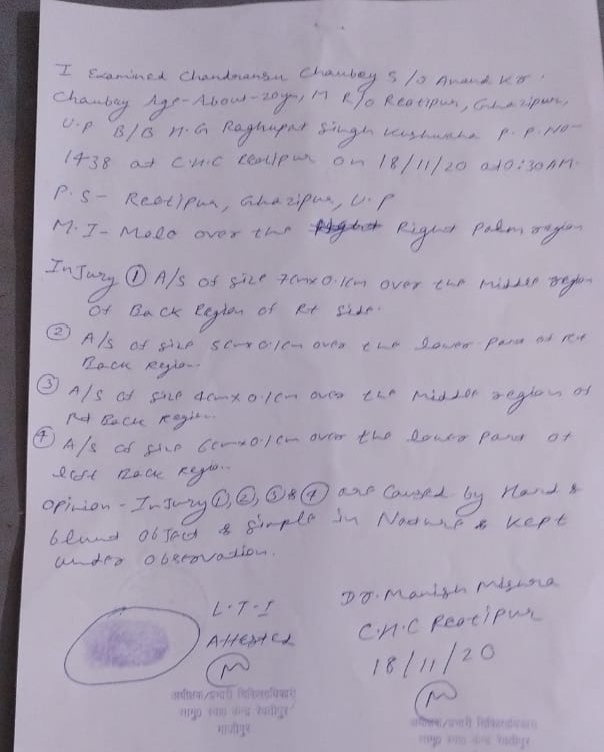 I Examined Chandranshu Chaubey S/o Anand Kr.
Chaubey Age-About-20yrs, M R/o Reotipur, Ghazipur,
U.P B/B H.G Raghupat Singh Kushwaha P.P.No-
1438 at C.H.C Reotipur on 18/11/20 at 0:30AM.
P.S- Reotipur, Ghazipur, U.P
M.I- Mole over the Right Palm region
Injury ① A/S of size 7cmx0.1cm over the Middle region
Of Back Region of Rt Side.
② A/S of size 5cmx0.1cm over the lower Part of Rt
Back Region.
③ A/S of size 4cmx0.1cm over the Middle region of
Rt Back Region.
④ A/S of size 6cmx0.1cm over the lower Part of
left Back Region.
Opinion - Injury ①, ②, ③ & ④ are Caused by Hard &
blunt Object & Simple in Nature & Kept
under Observation.
L.T.I
Attested
Dr. Manish Mishra
C.H.C Reotipur
18/11/20
अधीक्षक/प्रभारी चिकित्साधिकारी
सामु० स्वा० केन्द्र रेवतीपुर
गाजीपुर
अधीक्षक/प्रभारी चिकित्साधिकारी
सामु० स्वा० केन्द्र रेवतीपुर